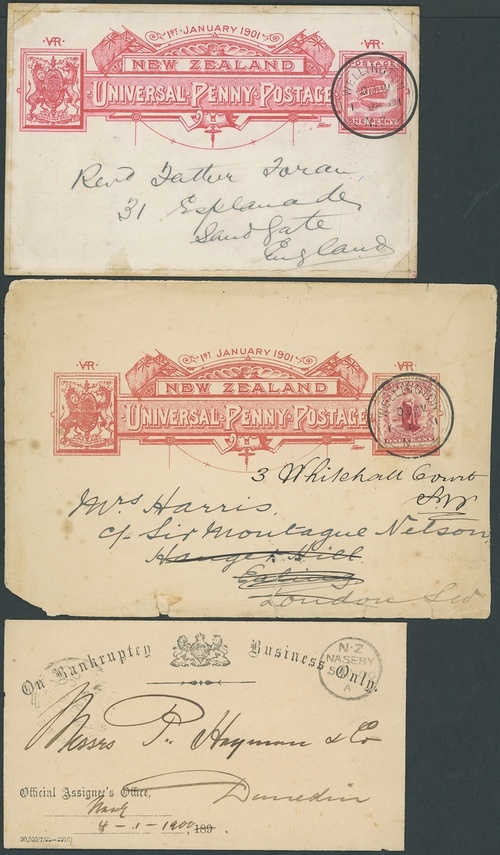 1ST JANUARY 1901
V.R.
V.R.
NEW ZEALAND
UNIVERSAL·PENNY·POSTAGE
POSTAGE
ONE PENNY
WELLINGTON
Revd Father Foran,
31 Esplanade,
Sandgate
England
1ST JANUARY 1901
V.R.
V.R.
NEW ZEALAND
UNIVERSAL·PENNY·POSTAGE
ONE PENNY
3 Whitehall Court
SW
Mrs Harris,
c/o Sir Montague Nelson
Hanger Hill
Ealing
London SW
On Bankruptcy Business Only.
N·Z
NASEBY
A
Messrs P. Hayman & Co
Official Assignee's Office,
Dunedin
4-1-1900, 189 .